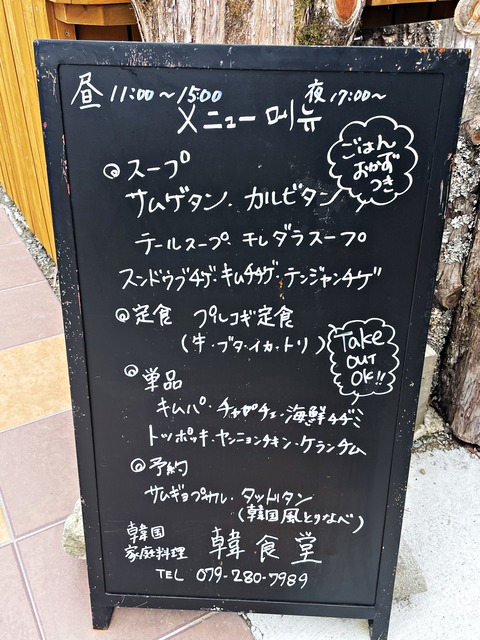 昼 11:00～15:00 夜 17:00～
メニュー 메뉴
ごはん
おかず
つき
◎スープ
サムゲタン・カルビタン
テールスープ・干しダラスープ
スンドゥブチゲ・キムチチゲ・テンジャンチゲ
◎定食 プルコギ定食
(牛・ブタ・イカ・トリ)
Take
out
OK!!
◎単品
キムパ・チャプチェ・海鮮チヂミ
トッポッキ・ヤンニョンチキン・ケランチム
◎予約
サムギョプサル・タッカンタン
(韓国風とりなべ)
韓国
家庭料理 韓食堂
TEL 079-280-7989